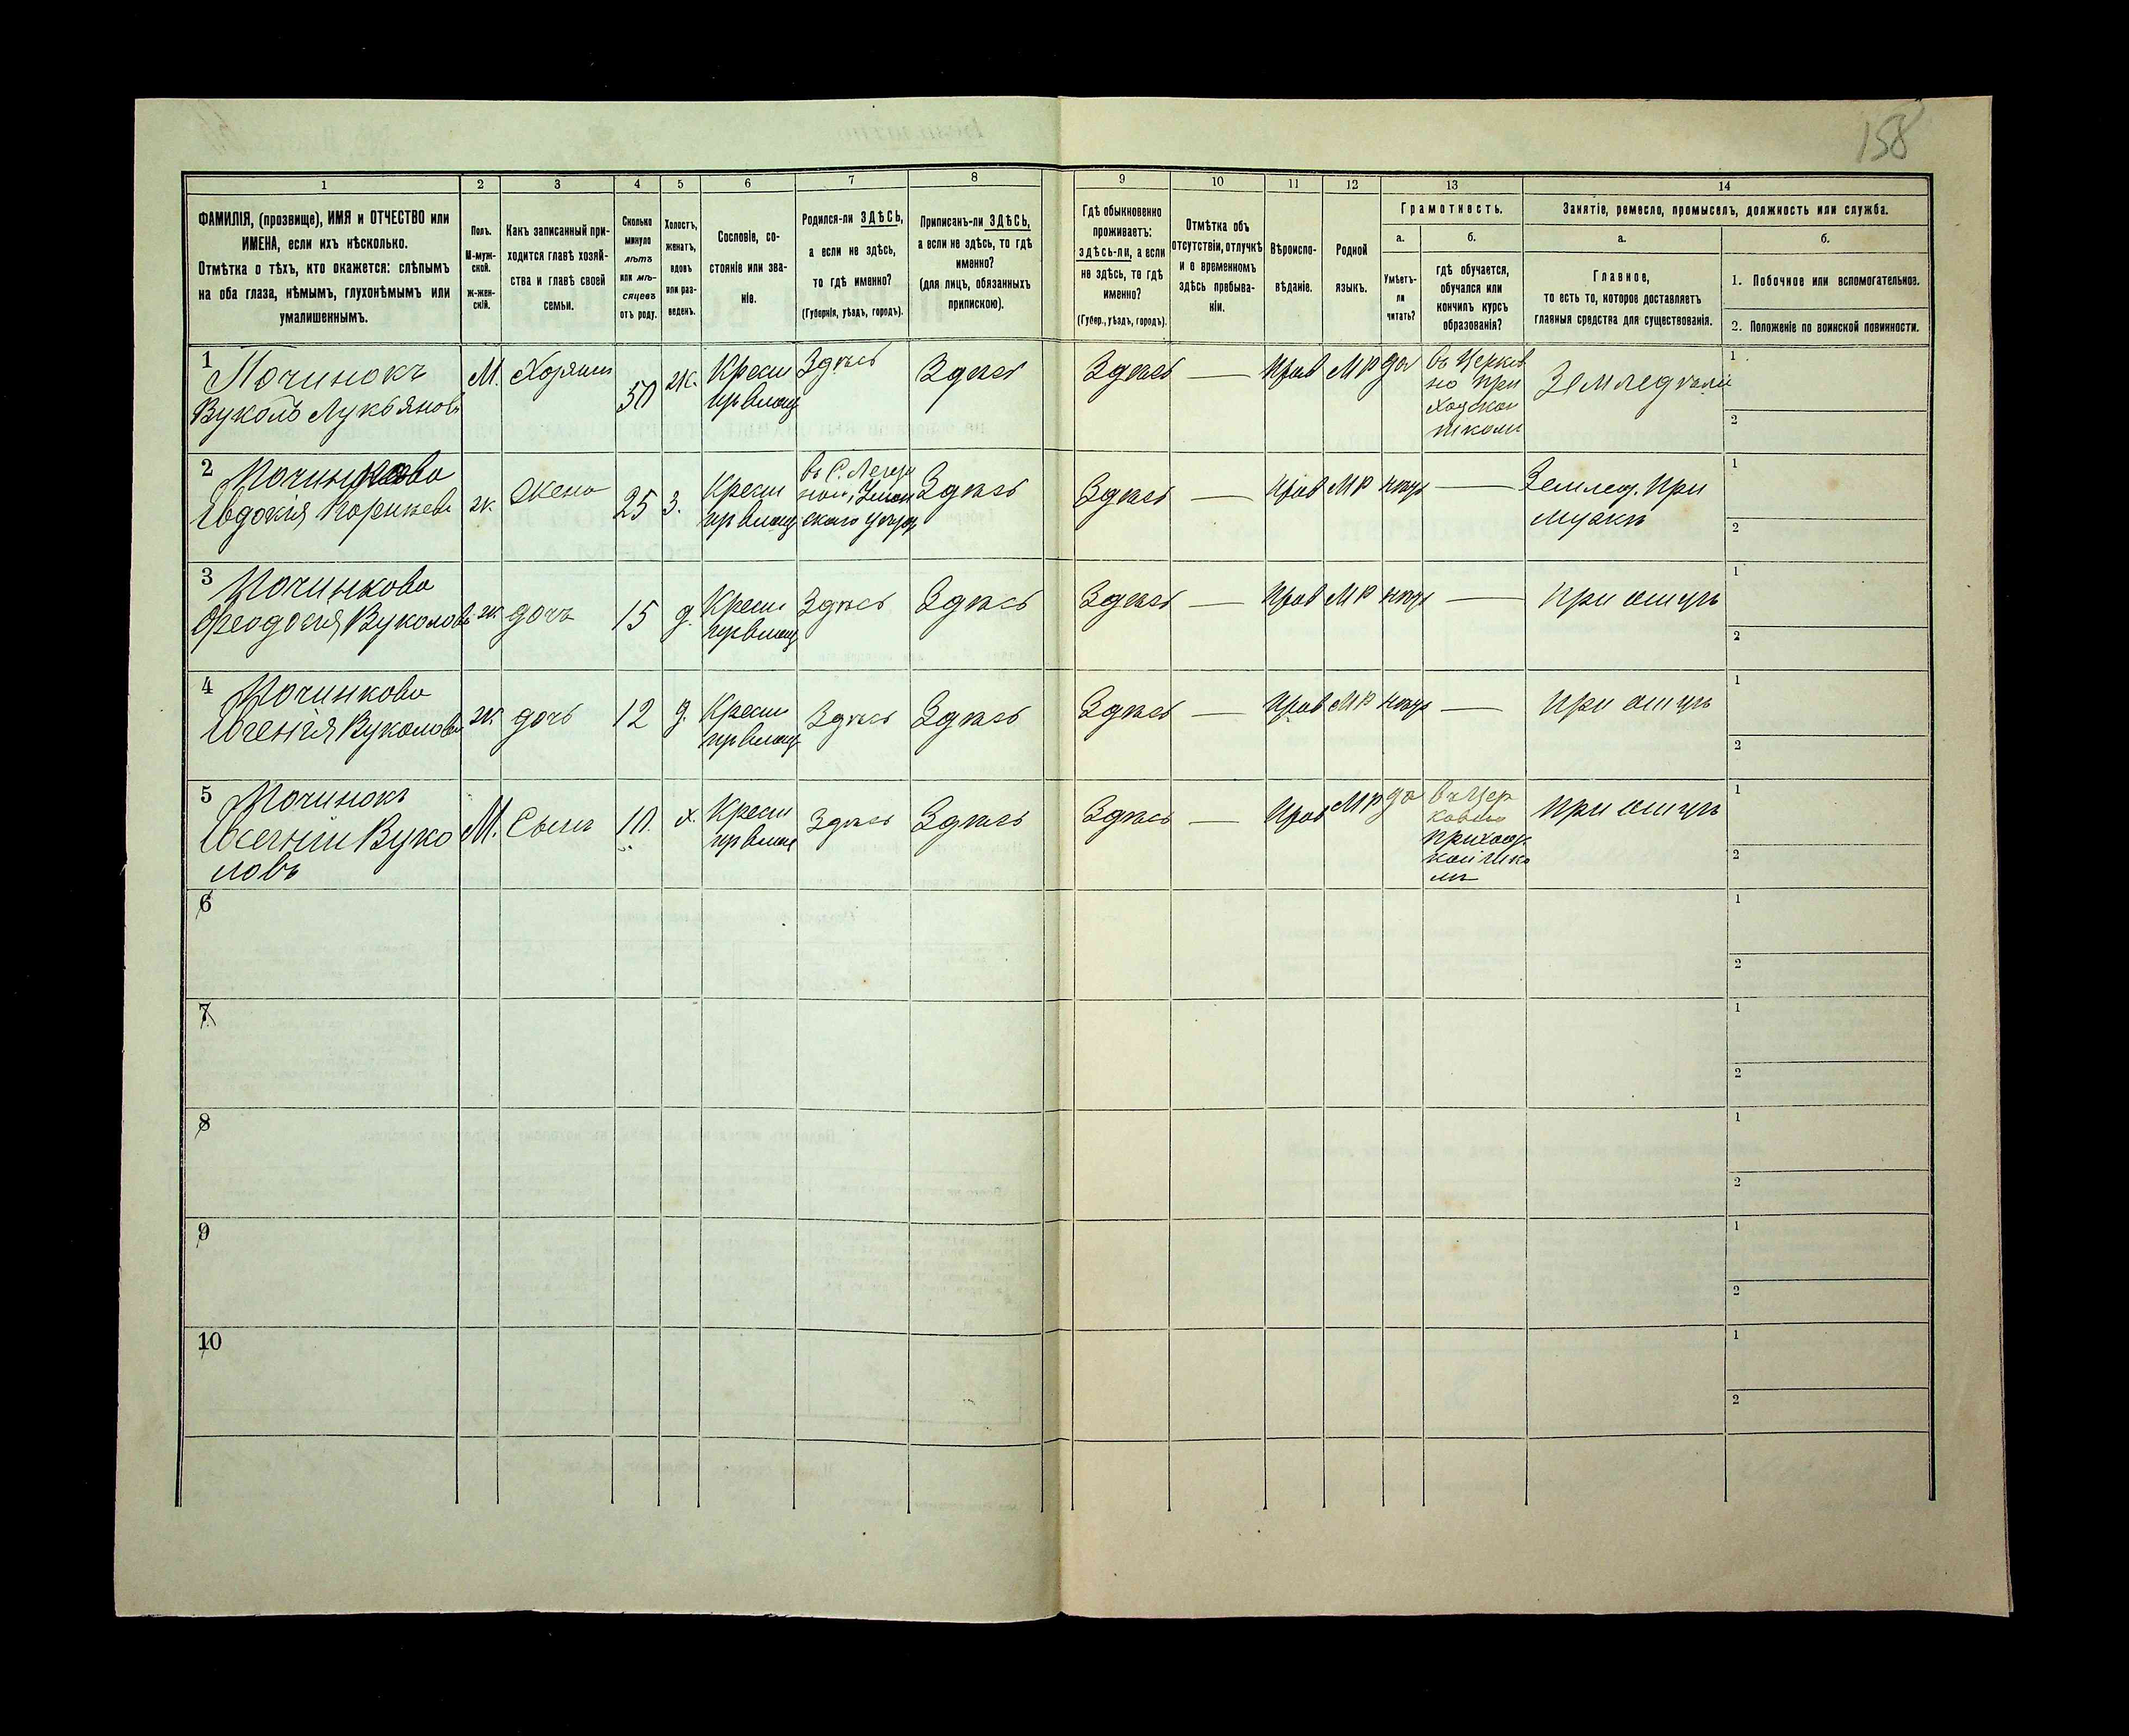 158
1 2 3 4 5 6 7 8 9 10 11 12 13 14
ФАМИЛІЯ, (прозвище), ИМЯ и ОТЧЕСТВО или
ИМЕНА, если ихъ нѣсколько.
Отмѣтка о тѣхъ, кто окажется: слѣпымъ
на оба глаза, нѣмымъ, глухонѣмымъ или
умалишеннымъ.
Полъ.
М-муж-
ской.
Ж-жен-
скій.
Какъ записанный при-
ходится главѣ хозяй-
ства и главѣ своей
семьи.
Сколько
минуло
лѣтъ
или мѣ-
сяцевъ
отъ роду.
Холостъ,
женатъ,
вдовъ
или раз-
веденъ.
Сословіе, со-
стояніе или зва-
ніе.
Родился-ли ЗДѢСЬ,
а если не здѣсь,
то гдѣ именно?
(Губернія, уѣздъ, городъ).
Приписанъ-ли ЗДѢСЬ,
а если не здѣсь, то гдѣ
именно?
(для лицъ, обязанныхъ
припискою).
Гдѣ обыкновенно
проживаетъ:
здѣсь-ли, а если
не здѣсь, то гдѣ
именно?
(Губер., уѣздъ, городъ).
Отмѣтка объ
отсутствіи, отлучкѣ
и о временномъ
здѣсь пребыва-
ніи.
Вѣроиспо-
вѣданіе.
Родной
языкъ.
Грамотность.
а.
Умѣетъ-
ли
читать?
б.
гдѣ обучается,
обучался или
кончилъ курсъ
образованія?
Занятіе, ремесло, промыселъ, должность или служба.
а.
Главное,
то есть то, которое доставляетъ
главныя средства для существованія.
б.
1. Побочное или вспомогательное.
2. Положеніе по воинской повинности.
1
Починокъ
Вуколъ Лукьяновъ
М.
Хозяин
50
ж.
Крест
ир владѣ
Здѣсь
Здѣсь
Здѣсь
—
Прав
М р
да
въ Церков
но при
ходской
школи
Земледѣліе
1
2
2
Починкова
Евдокія
ж.
Жена
25
З.
Крест
ир владѣ
въ С.
ского уѣзда
Здѣсь
Здѣсь
—
Прав
М р
нѣтъ
—
Землед. при
мужѣ
1
2
3
Починкова
Феодосія Вуколов
ж.
дочь
15
д.
Крест
ир владѣ
Здѣсь
Здѣсь
Здѣсь
—
Прав
М р
нѣтъ
—
при отцѣ
1
2
4
Починкова
Вуколов
ж.
дочь
12
д.
Крест
ир владѣ
Здѣсь
Здѣсь
Здѣсь
—
Прав
М р
нѣтъ
—
при отцѣ
1
2
5
Починокъ
Вуко
ловъ
М.
Сынъ
10.
х.
Крест
ир влад
Здѣсь
Здѣсь
Здѣсь
—
Прав
М р
да
въ Цер
ковно
приход
кой шко
лѣ
при отцѣ
1
2
6
1
2
7
1
2
8
1
2
9
1
2
10
1
2